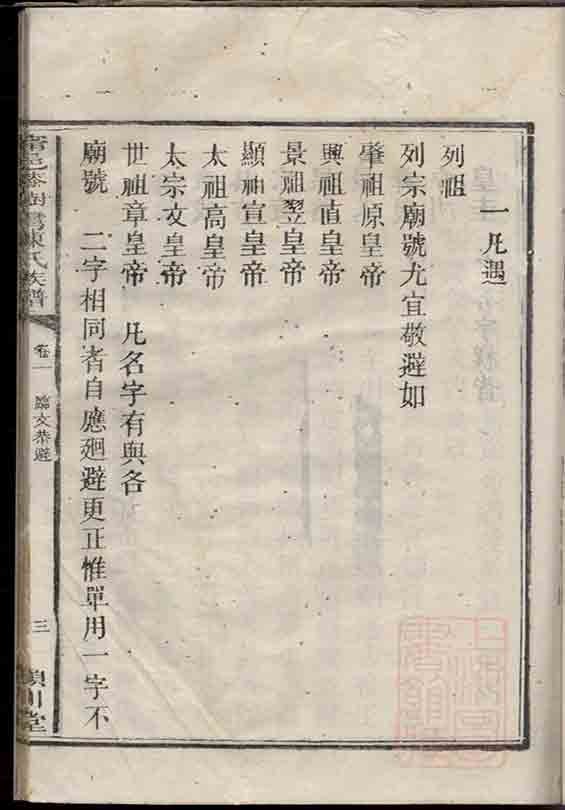 一凡遇
列祖
列宗廟號尤宜敬避如
肇祖原皇帝
興祖直皇帝
景祖翼皇帝
顯祖宣皇帝
太祖高皇帝
太宗文皇帝
世祖章皇帝 凡名字有與各
廟號 二字相同者自應廻避更正惟單用一字不
氏族譜
卷一
臨文恭避
三
川堂